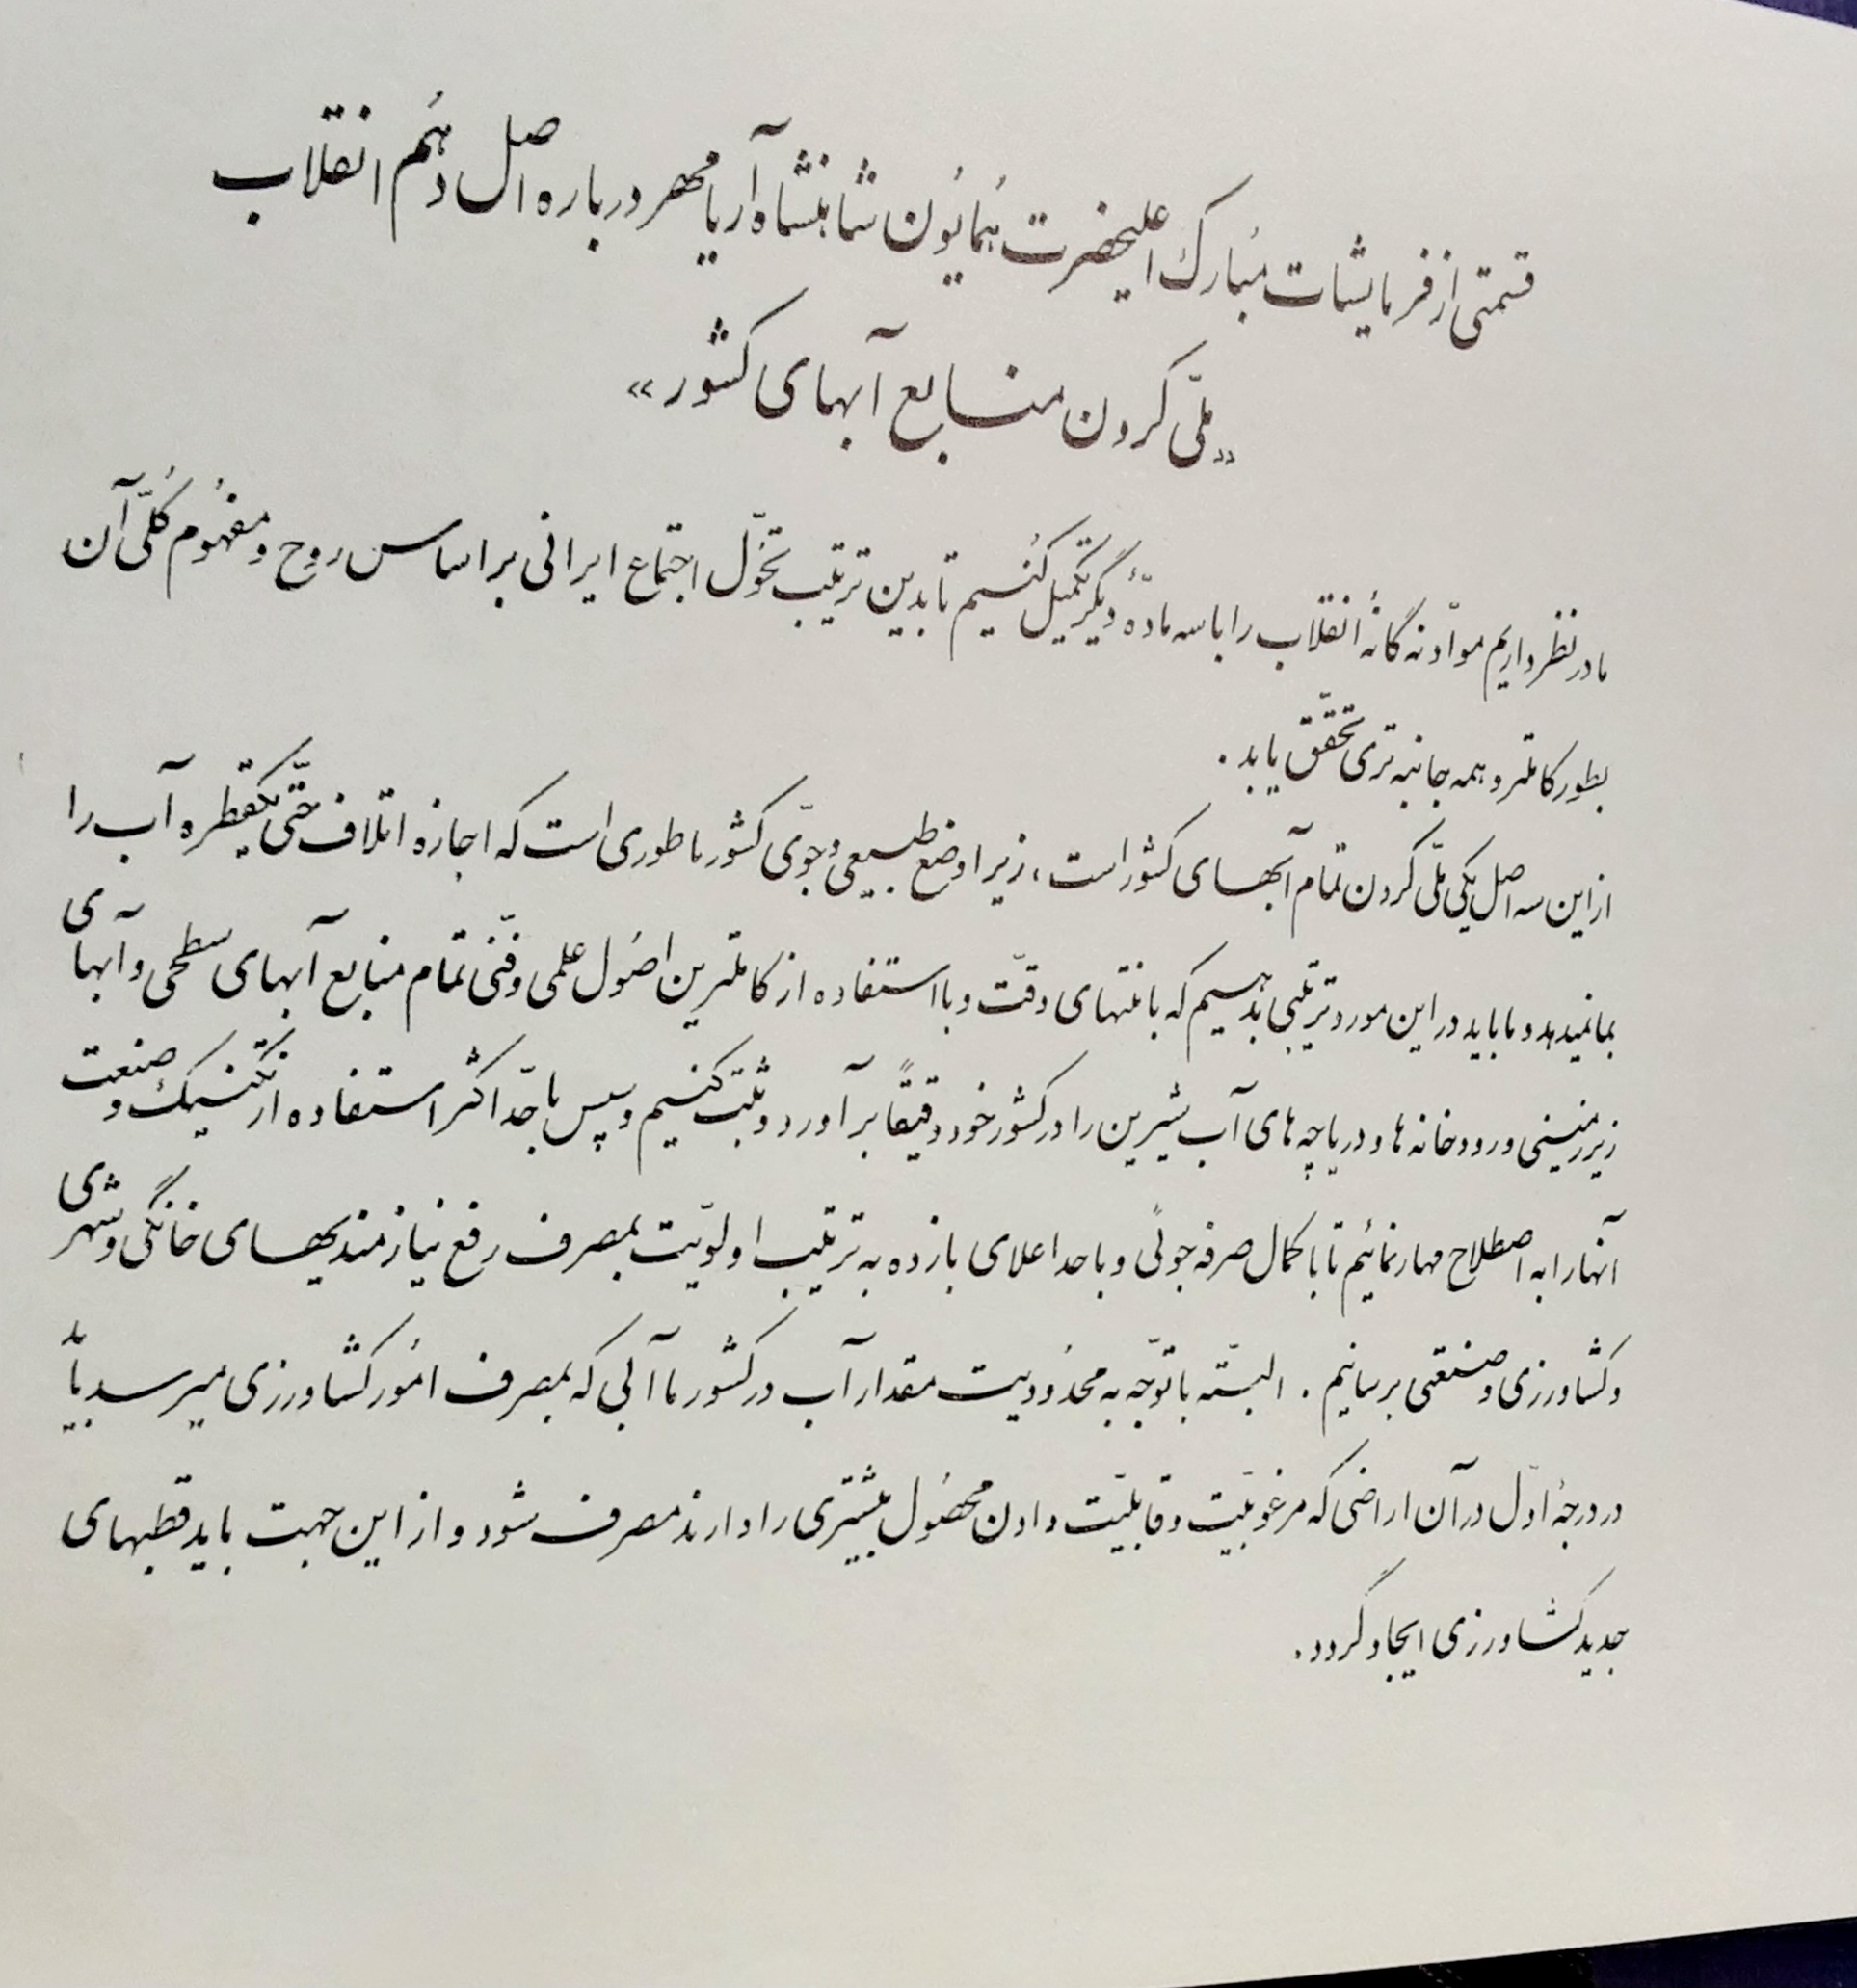 قسمتی از فرمایشات مُبارک اعلیحضرت هُمایُون شاهنشاه آریامهر درباره اصل دهُم انقلاب
«ملّی کردن منابع آبهای کشور»
ما در نظر داریم موادّ نه گانهٔ انقلاب را با سه مادّهٔ دیگر تکمیل کُنیم تا بدین ترتیب تحوّل اجتماع ایرانی براساس روح و مفهُوم کُلّی آن
بطور کاملتر و همه جانبه تری تحقّق یابد .
از این سه اصل یکی ملّی کردن تمام آبهای کشور است ، زیرا وضع طبیعی و جوّی کشور ما طوری است که اجازه اتلاف حتّی یکقطره آب را
بما نمیدهد و ما باید در این مورد ترتیبی بدهیم که با منتهای دقّت و با استفاده از کاملترین اصُول علمی و فنّی تمام منابع آبهای سطحی و آبهای
زیرزمینی و رودخانه ها و دریاچه های آب شیرین را در کشور خود دقیقاً برآورد و ثبت کنیم و سپس با حدّاکثر استفاده از تکنیک و صنعت
آنها را به اصطلاح مهار نمائیم تا با کمال صرفه جوئی و با حد اعلای بازده به ترتیب اولویّت بمصرف رفع نیازمندیهای خانگی و شهری
و کشاورزی و صنعتی برسانیم . البتّه با توّجه به محدُودیت مقدار آب در کشور ما آبی که بمصرف امُور کشاورزی میرسد باید
در درجهٔ اوّل در آن اراضی که مرغوبیّت و قابلیّت دادن محصُول بیشتری را دارند مصرف شود و از این جهت باید قطبهای
جدید کشاورزی ایجاد گردد .